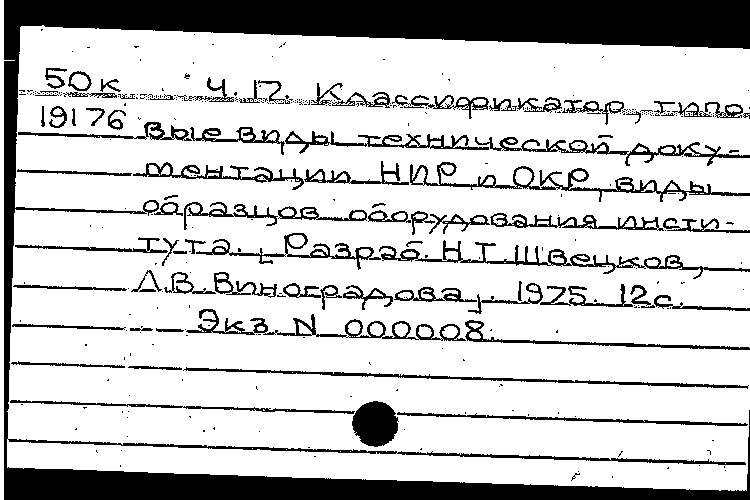 50к Ч. П. Классификатор, типо-
19176 вые виды технической доку-
ментации НИР и ОКР, виды
образцов оборудования инсти-
тута. [Разраб. Н.Т. Швецков,
Л.В. Виноградова]. 1975. 12с.
Экз. N 000008.